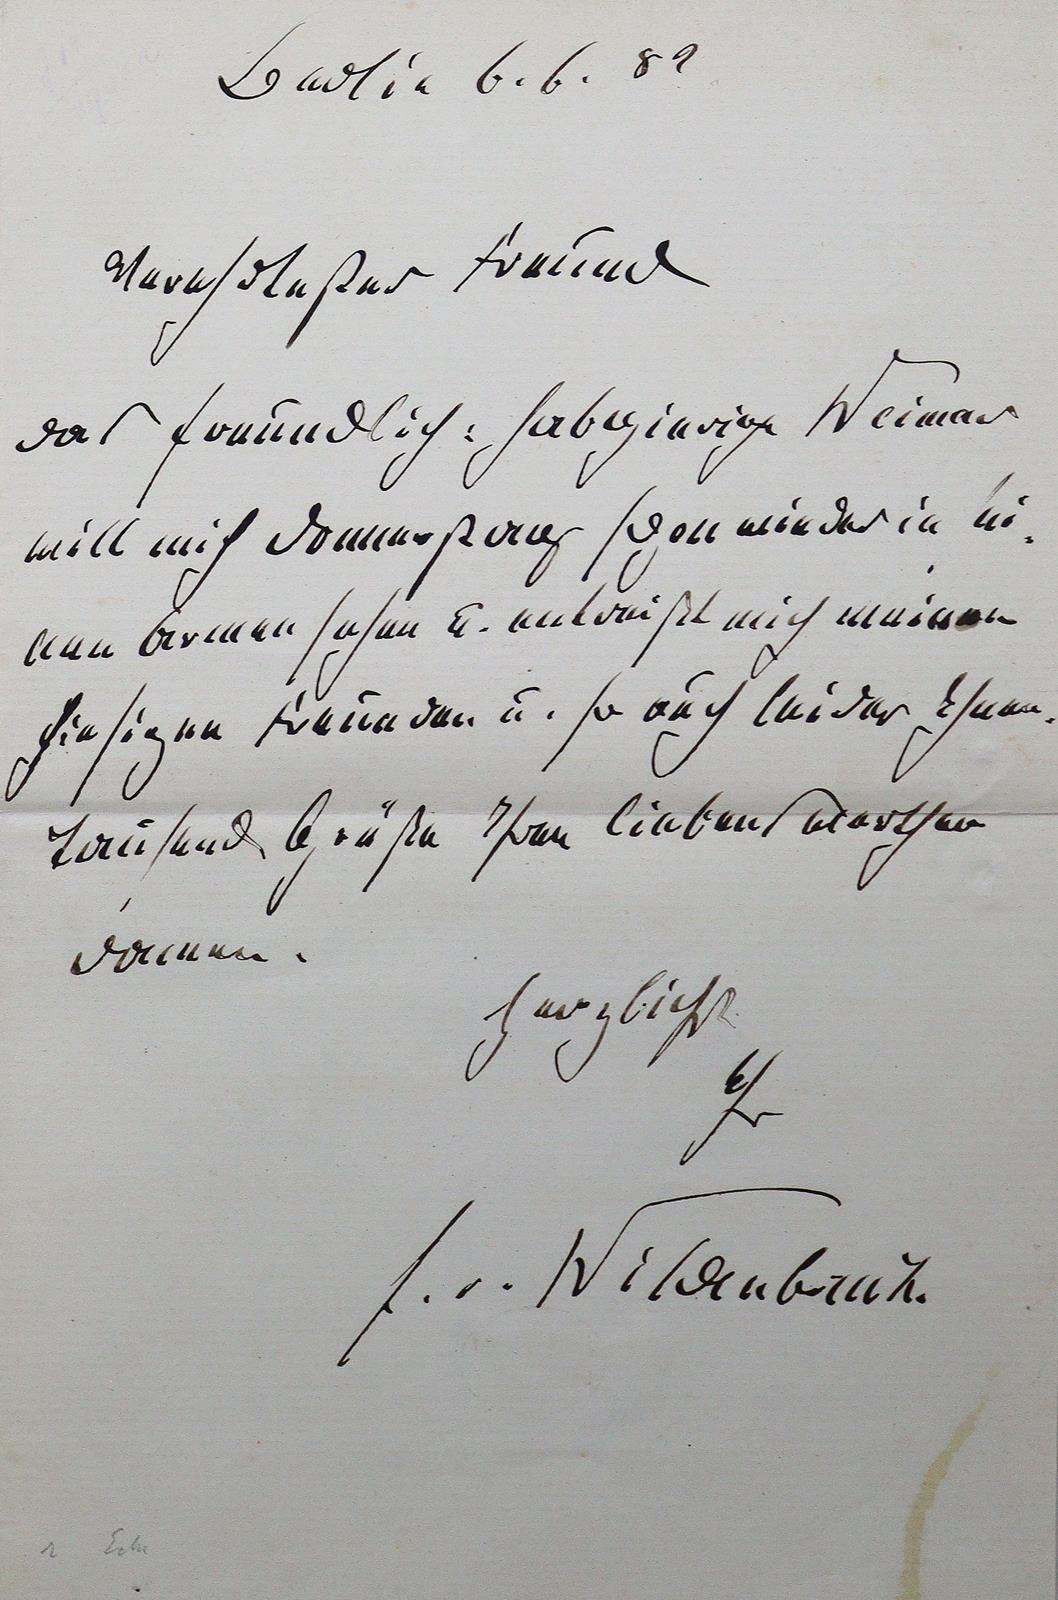 Berlin 6. 6. 82
Verehrtester Freund
das freundlich: habgierige Weimar
will mich Donnerstag schon wieder in sei-
nen Armen sehen u. entreißt mich meinen
hiesigen Freunden u. so auch leider Ihnen.
Tausend Grüße Ihren liebenswerthen
Damen.
Herzlichst
Ihr
E. v. Wildenbruch.